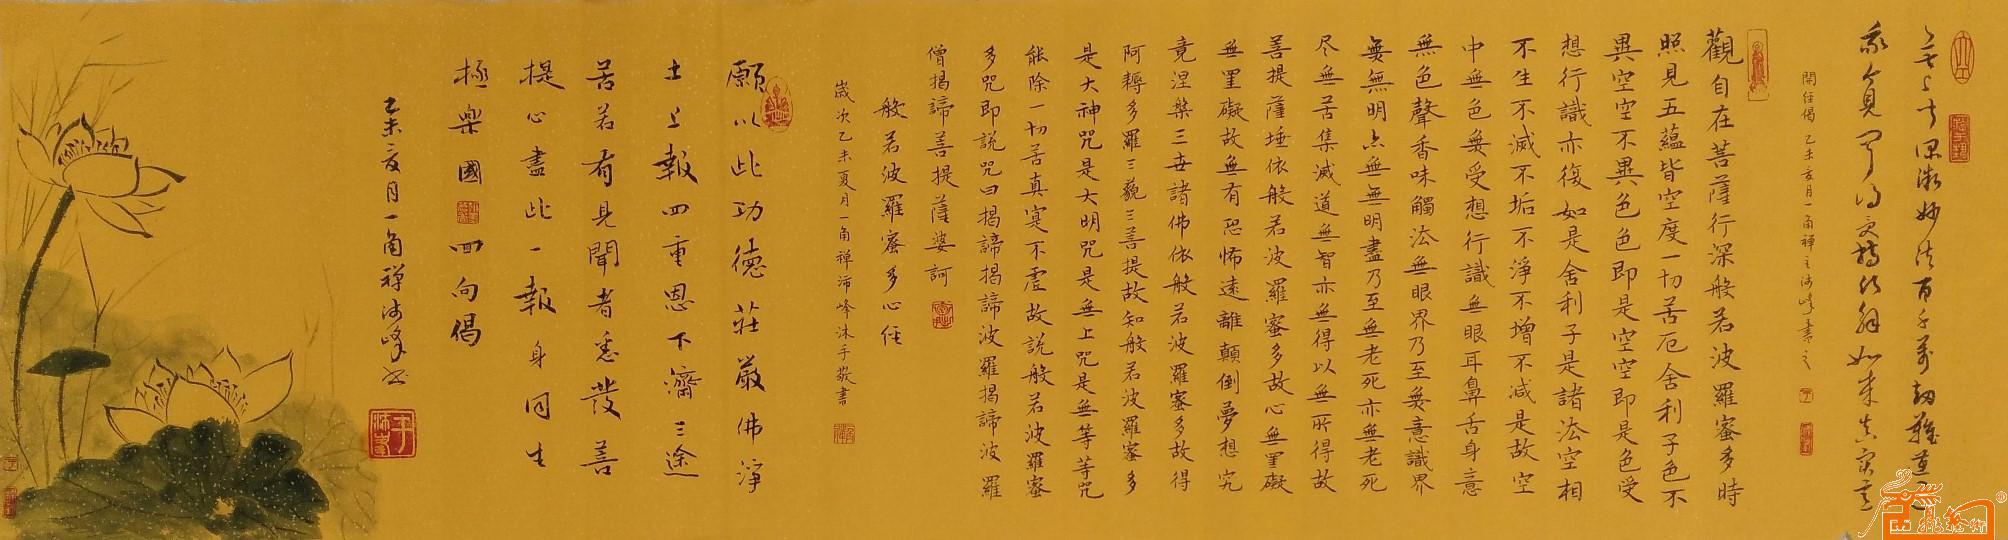 無上甚深微妙法百千萬劫難遭遇
我今見聞得受持願解如來真實意
開经偈 乙未亥月一角禅主沛峰書之
觀自在菩薩行深般若波羅蜜多時
照見五蘊皆空度一切苦厄舍利子色不
異空空不異色色即是空空即是色受
想行識亦復如是舍利子是諸法空相
不生不滅不垢不淨不增不减是故空
中無色無受想行識無眼耳鼻舌身意
無色聲香味觸法無眼界乃至無意識界
無無明亦無無明盡乃至無老死亦無老死
尽無苦集滅道無智亦無得以無所得故
菩提薩埵依般若波羅蜜多故心無罣礙
無罣礙故無有恐怖遠離顛倒夢想究
竟涅槃三世諸佛依般若波羅蜜多故得
阿耨多羅三藐三菩提故知般若波羅蜜多
是大神咒是大明咒是無上咒是無等等咒
能除一切苦真寔不虛故説般若波羅蜜
多咒即説咒曰揭諦揭諦波羅揭諦波羅
僧揭諦菩提薩婆訶
般若波羅蜜多心经
歲次乙未夏月一角禅沛峰沐手敬書
願以此功德莊嚴佛淨
土上報四重恩下濟三途
苦若有見聞者悉發菩
提心盡此一報身同生
極楽國 回向偈
乙未亥月一角禅沛峰书